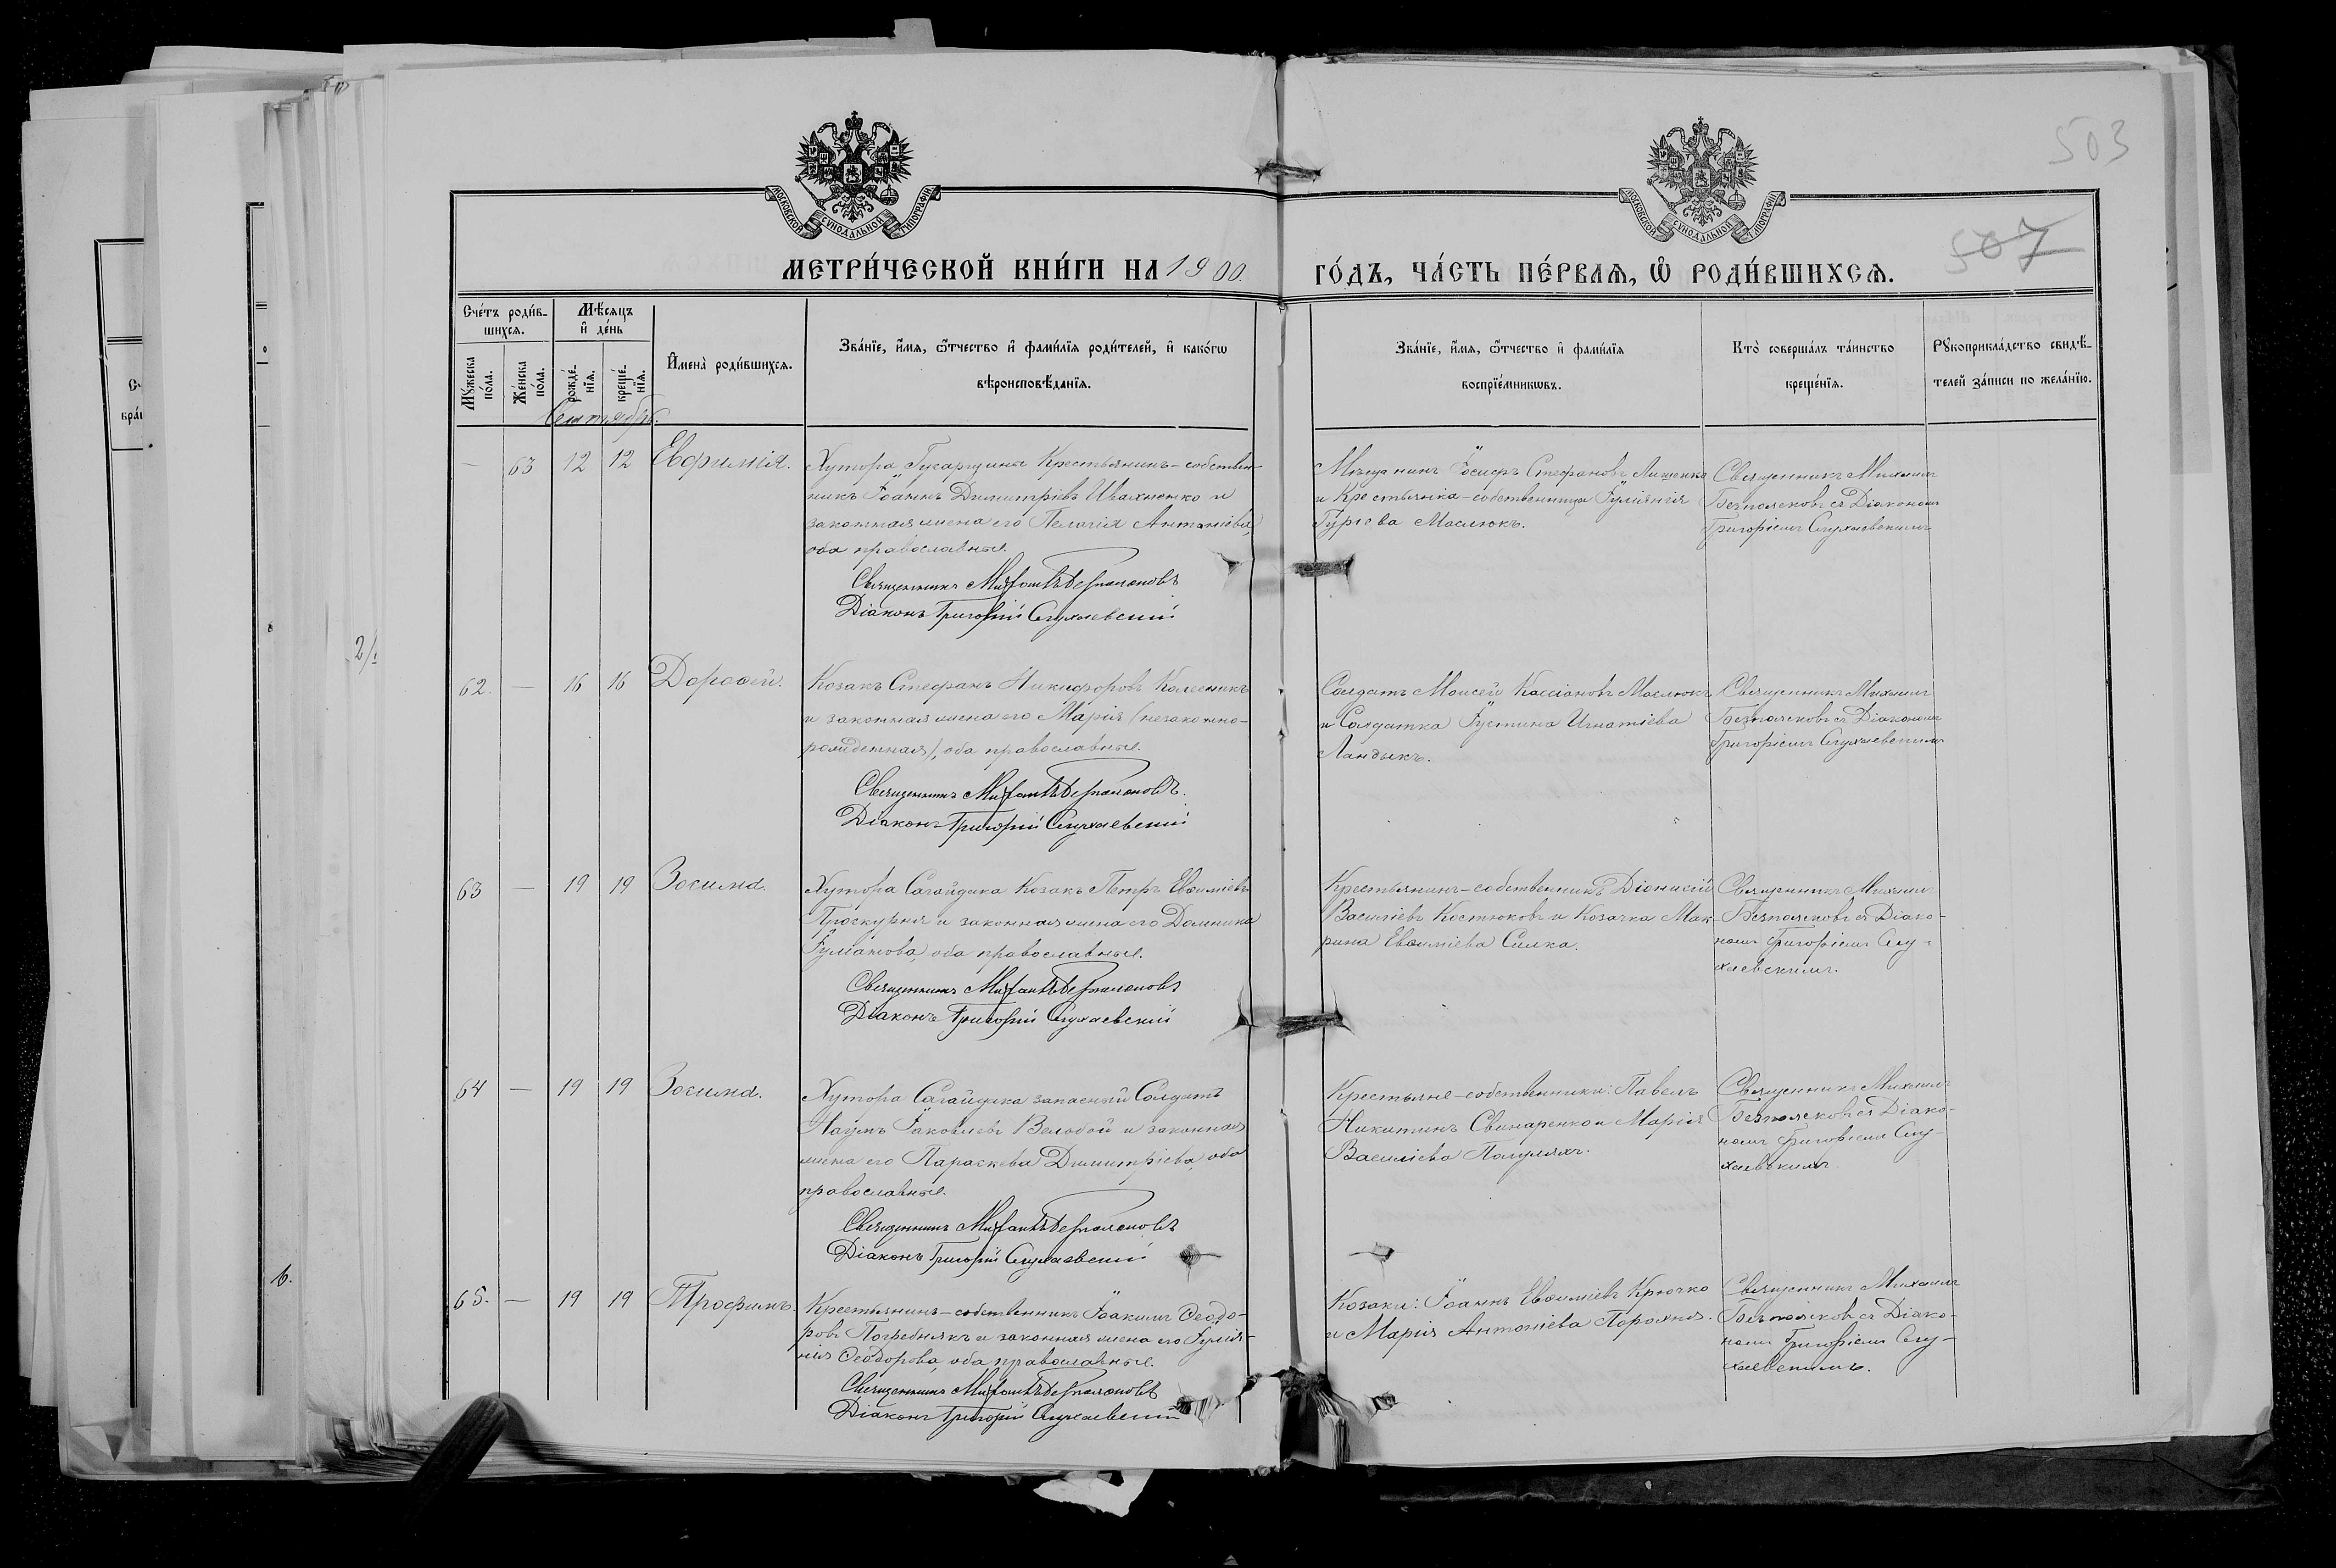 503
507
МОСКОВСКОЙ СѴНОДАЛЬНОЙ ТИПОГРАФІИ
МОСКОВСКОЙ СѴНОДАЛЬНОЙ ТИПОГРАФІИ
МЕТРИ́ЧЕСКОЙ КНИ́ГИ НА 1900 ГО́ДЪ, ЧА́СТЬ ПЕ́РВАѦ, Ѡ҆ РОДИ́ВШИХСѦ.
Сче́тъ роди́в-
шихсѧ.
Мѣ́сѧцъ
и҆ де́нь
Мꙋ́жеска
по́ла.
Же́нска
по́ла.
рожде́-
нїѧ.
креще́-
нїѧ.
И҆мена̀ роди́вшихсѧ.
Зва́нїе, и҆́мѧ, ѻ҆́тчество и҆ фами́лїѧ роди́телей, и҆ како́гѡ
вѣроисповѣ́данїѧ.
Зва́нїе, и҆́мѧ, ѻ҆́тчество и҆ фами́лїѧ
воспрїе́мникѡвъ.
Кто̀ соверша́лъ та́инство
креще́нїѧ.
Рꙋкоприкла́дство свидѣ́-
телей за́писи по жела́нїю.
Сентябрь.
— 63 12 12 Евфимія.
Хутора Гусарщина Крестьянинъ-собствен-
никъ Іоаннъ Димитріевъ Ивахненко и
законная жена его Пелагія Антоніева,
оба православные.
Священникъ Михаилъ Безпалсковъ
Діаконъ Григорій Слухаевскій
Мѣщанинъ Іосифъ Стефановъ Лищенко
и Крестьянка-собственница Іуліянія
Гуріева Маслюкъ.
Священникъ Михаилъ
Безпалсковъ съ Діакономъ
Григоріемъ Слухаевскимъ
62. — 16 16 Дорофей.
Козакъ Стефанъ Никифоровъ Колесникъ
и законная жена его Марія (незаконно-
рожденная), оба православные.
Священникъ Михаилъ Безпалсковъ.
Діаконъ Григорій Слухаевскій
Солдатъ Моисей Кассіановъ Маслюкъ
и Солдатка Іустина Игнатіева
Ландыкъ.
Священникъ Михаилъ
Безпалсковъ съ Діакономъ
Григоріемъ Слухаевскимъ
63 — 19 19 Зосима.
Хутора Сагайдака Козакъ Петръ Евѳиміевъ
Проскурня и законная жена его Домника
Іуліанова, оба православные.
Священникъ Михаилъ Безпалсковъ
Діаконъ Григорій Слухаевскій
Крестьянинъ-собственникъ Діонисій
Василіевъ Костюковъ и Козачка Мак-
рина Евѳиміева Силка.
Священникъ Михаилъ
Безпалсковъ съ Діако-
номъ Григоріемъ Слу-
хаевскимъ.
64 — 19 19 Зосима.
Хутора Сагайдака запасный Солдатъ
Наумъ Іаковлевъ Велобой и законная
жена его Параскева Димитріева, оба
православные.
Священникъ Михаилъ Безпалсковъ
Діаконъ Григорій Слухаевскій
Крестьяне-собственники: Павелъ
Никитинъ Свинаренко и Марія
Василіева Погуляхъ.
Священникъ Михаилъ
Безпалсковъ съ Діако-
номъ Григоріемъ Слу-
хаевскимъ.
65. — 19 19 Трофимъ.
Крестьянинъ-собственникъ Іоакимъ Ѳеодо-
ровъ Погребнякъ и законная жена его Іулія-
нія Ѳеодорова, оба православные.
Священникъ Михаилъ Безпалсковъ
Діаконъ Григорій Слухаевскій
Козаки: Іоаннъ Евѳиміевъ Крючко
и Марія Антоніева Порохня.
Священникъ Михаилъ
Безпалсковъ съ Діако-
номъ Григоріемъ Слу-
хаевскимъ.